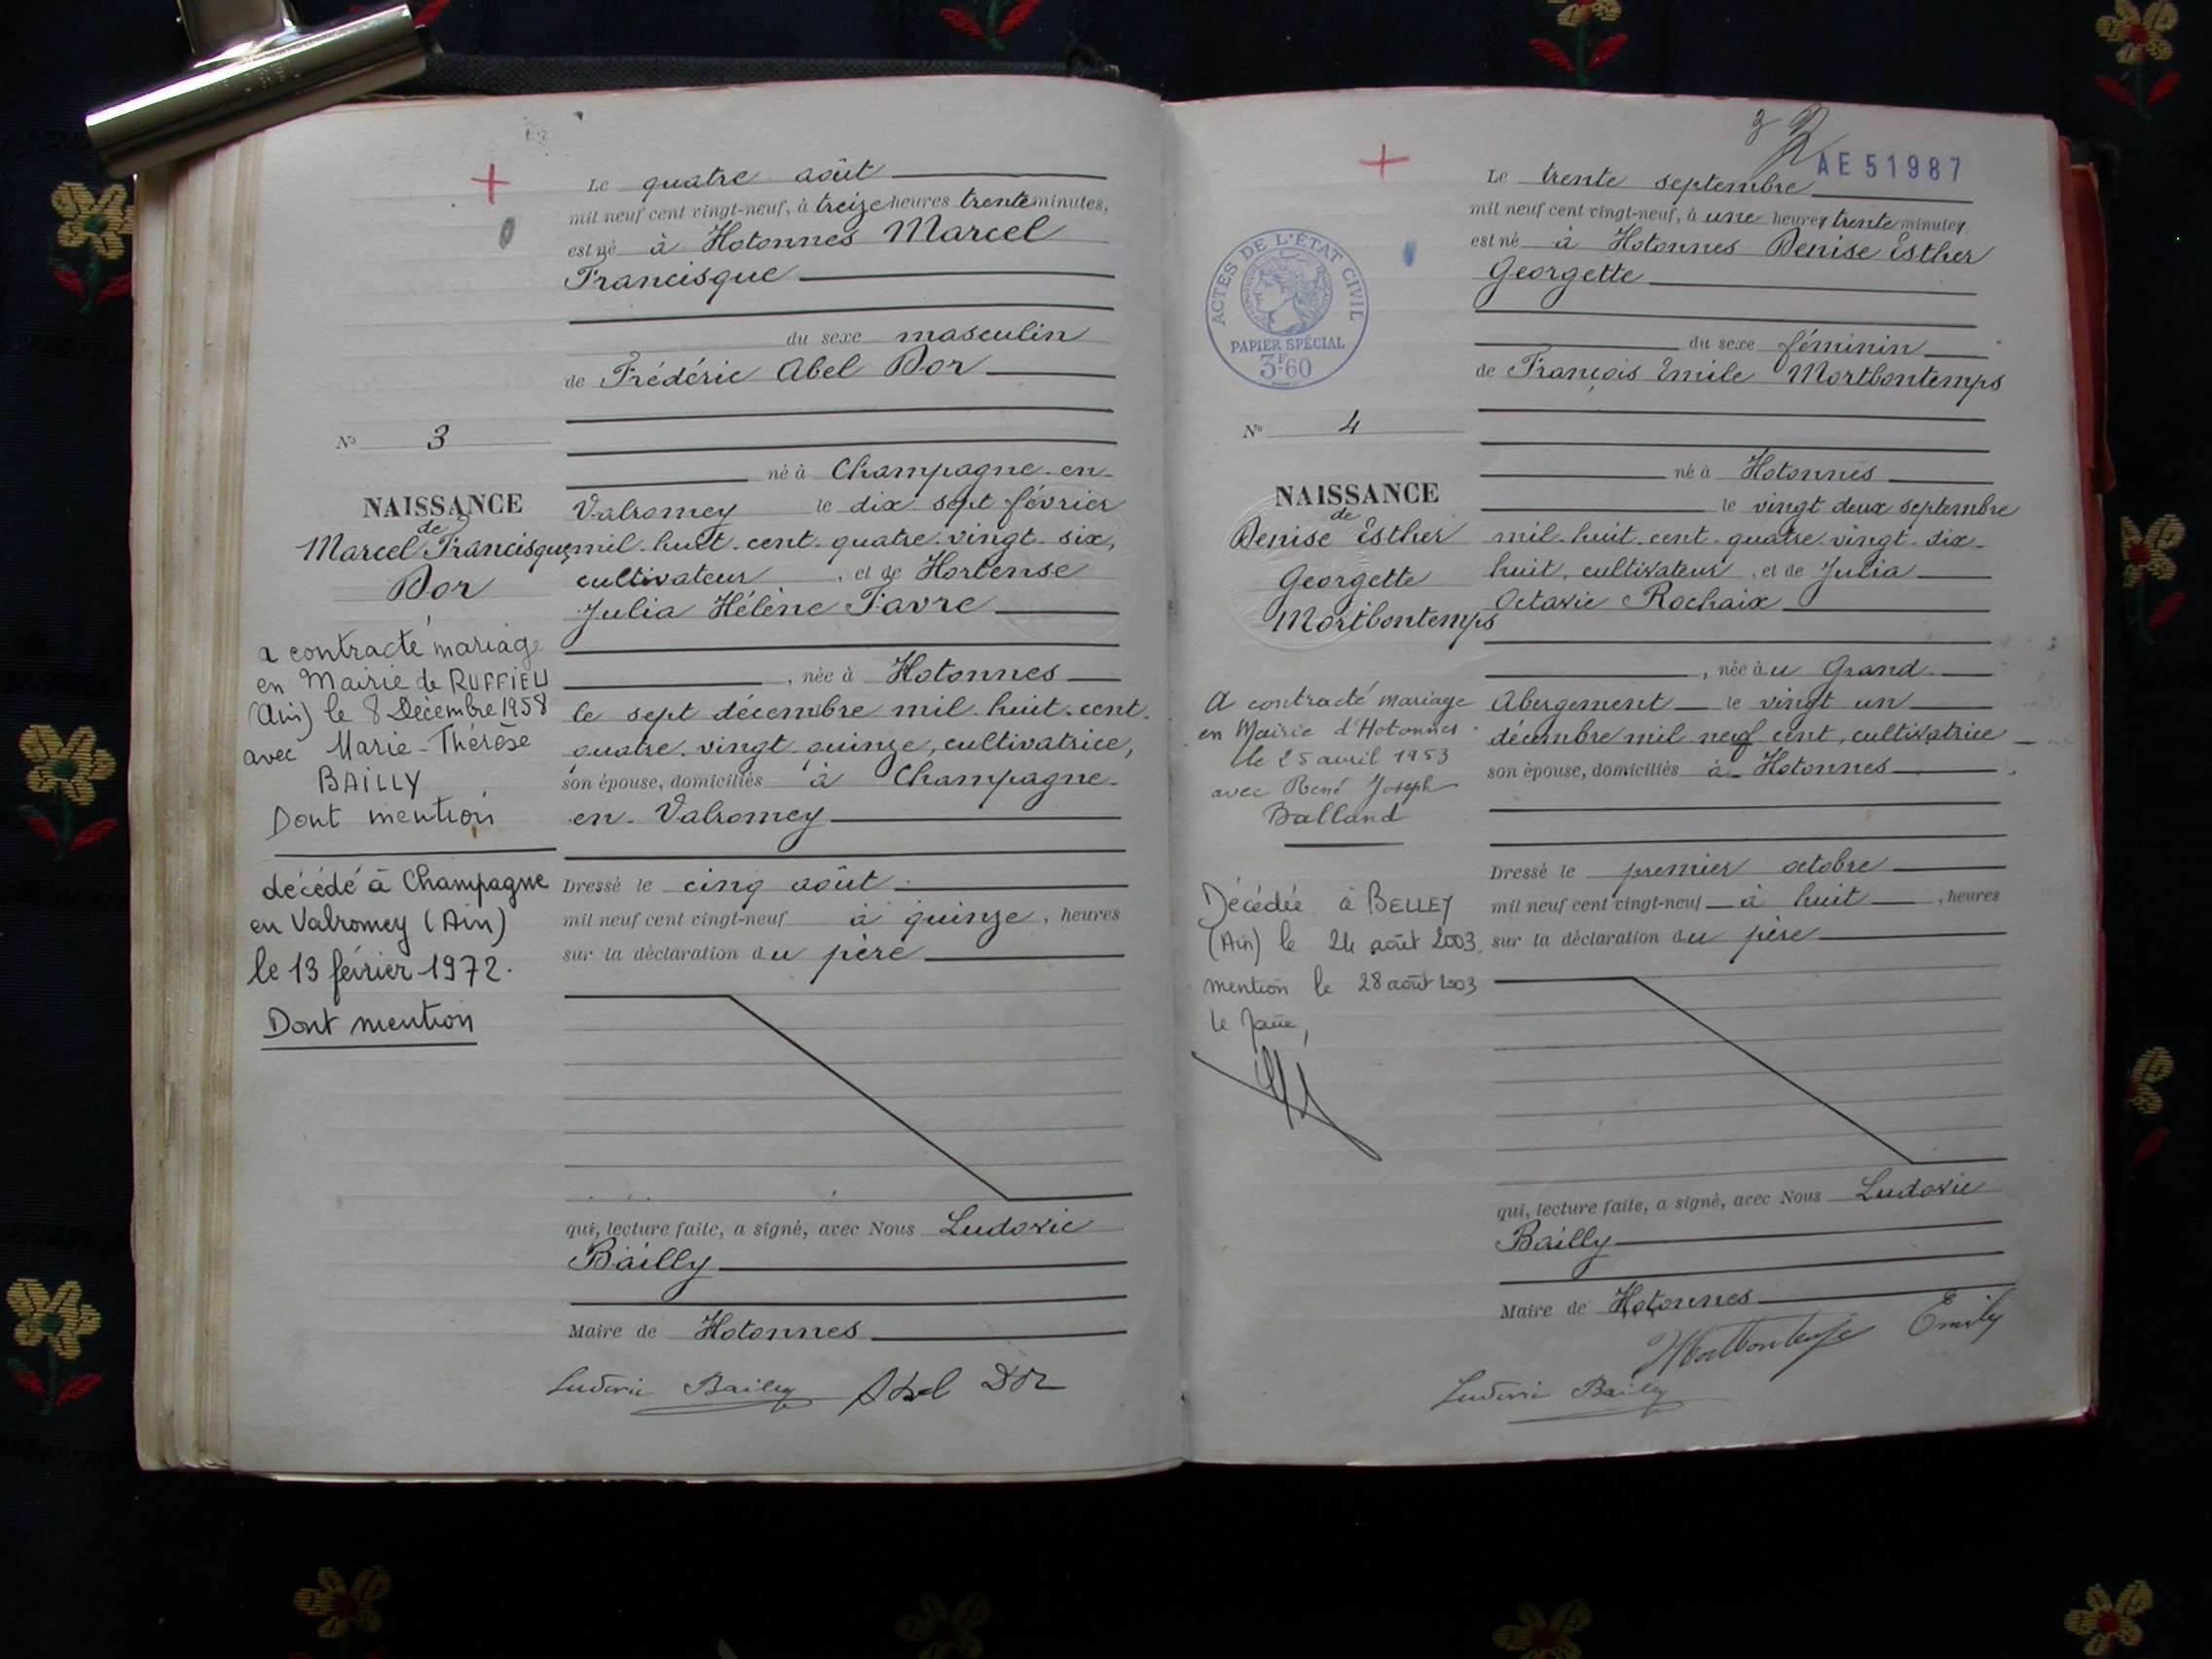 Le quatre août
mil neuf cent vingt-neuf, à treize heures trente minutes,
est né à Hotonnes Marcel
Francisque
du sexe masculin
de Frédéric Abel Dor
N° 3
né à Champagne-en-
NAISSANCE
de
Marcel Francisque
Dor
Valromey le dix sept février
mil-huit-cent-quatre-vingt-six,
cultivateur, et de Hortense
Julia Hélène Favre
, née à Hotonnes
le sept décembre mil-huit-cent-
quatre-vingt-quinze, cultivatrice,
son épouse, domiciliés à Champagne-
en-Valromey
a contracté mariage
en Mairie de RUFFIEU
(Ain) le 8 Décembre 1958
avec Marie-Thérèse
BAILLY
Dont mention
décédé à Champagne
en Valromey (Ain)
le 13 février 1972.
Dont mention
Dressé le cinq août
mil neuf cent vingt-neuf à quinze, heures
sur la déclaration du père
qui, lecture faite, a signé, avec Nous Ludovic
Bailly
Maire de Hotonnes
Ludovic Bailly Abel Dor
AE 51987
Le trente septembre
mil neuf cent vingt-neuf, à une heure, trente minutes,
est né à Hotonnes Denise Esther
Georgette
ACTES DE L'ÉTAT CIVIL
PAPIER SPÉCIAL
3F60
du sexe féminin
de François Emile Mortbontemps
N° 4
né à Hotonnes
NAISSANCE
de
Denise Esther
Georgette
Mortbontemps
le vingt deux septembre
mil-huit-cent-quatre-vingt-dix-
huit, cultivateur, et de Julia
Octavie Rochaix
, née au Grand-
Abergement le vingt un
décembre mil neuf cent, cultivatrice
son épouse, domiciliés à Hotonnes
A contracté mariage
en Mairie d'Hotonnes
le 25 avril 1953
avec René Joseph
Balland
Décédée à BELLEY
(Ain) le 24 août 2003.
mention le 28 août 2003
le Maire,
Dressé le premier octobre
mil neuf cent vingt-neuf à huit, heures
sur la déclaration du père
qui, lecture faite, a signé, avec Nous Ludovic
Bailly
Maire de Hotonnes
Mortbontemps Emile
Ludovic Bailly